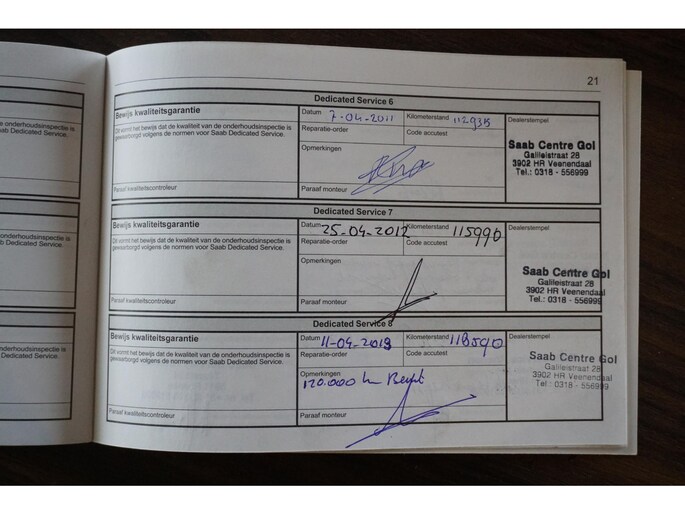 21
Dedicated Service 6
Bewijs kwaliteitsgarantie
Dit vormt het bewijs dat de kwaliteit van de onderhoudsinspectie is
gewaarborgd volgens de normen voor Saab Dedicated Service.
Paraaf kwaliteitscontroleur
Datum 7-04-2011
Reparatie-order
Opmerkingen
Paraaf monteur
Kilometerstand
Code accutest
Dealerstempel
Saab Centre Gol
Galileistraat 28
3902 HR Veenendaal
Tel.: 0318 - 556999
Dedicated Service 7
Bewijs kwaliteitsgarantie
Dit vormt het bewijs dat de kwaliteit van de onderhoudsinspectie is
gewaarborgd volgens de normen voor Saab Dedicated Service.
Paraaf kwaliteitscontroleur
Datum 25-04-2012
Reparatie-order
Opmerkingen
Paraaf monteur
Kilometerstand 115990
Code accutest
Dealerstempel
Saab Centre Gol
Galileistraat 28
3902 HR Veenendaal
Tel.: 0318 - 556999
Dedicated Service 8
Bewijs kwaliteitsgarantie
Dit vormt het bewijs dat de kwaliteit van de onderhoudsinspectie is
gewaarborgd volgens de normen voor Saab Dedicated Service.
Paraaf kwaliteitscontroleur
Datum 11-04-2013
Reparatie-order
Opmerkingen
120.000 km Beurt
Paraaf monteur
Kilometerstand 118590
Code accutest
Dealerstempel
Saab Centre Gol
Galileistraat 28
3902 HR Veenendaal
Tel.: 0318 - 556999